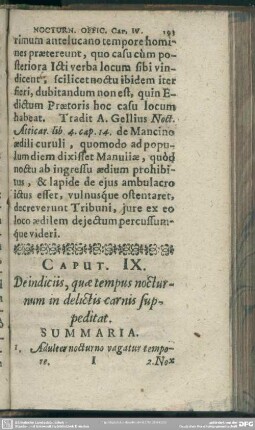 NOCTURN. OFFIC. CAP. IV. 193
rimum antelucano tempore homi-
nes prætereunt, quo casu cùm po-
steriora Icti verba locum sibi vin-
dicent, scilicet noctu ibidem iter
fieri, dubitandum non est, quin E-
dictum Prætoris hoc casu locum
habeat. Tradit A. Gellius Noct.
Atticar. lib. 4. cap. 14. de Mancino
ædili curuli, quomodo ad popu-
lum diem dixisset Manuliæ, quòd
noctu ab ingressu ædium prohibi-
tus, & lapide de ejus ambulacro
ictus esset, vulnusque ostentaret,
decreverunt Tribuni, jure ex eo
loco ædilem dejectum percussum-
que videri.
CAPUT. IX.
De indiciis, quæ tempus noctur-
num in delictis carnis sup-
peditat.
SUMMARIA.
1. Adulter nocturno vagatur tempo-
re. I 2. Nox